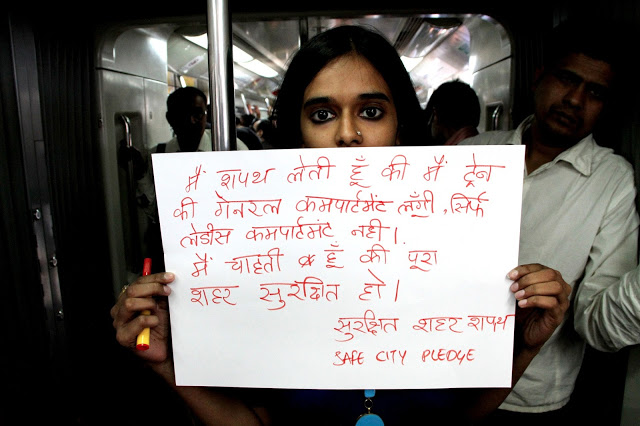 मैं शपथ लेती हूँ की मैं ट्रेन
की गेनरल कमपार्टमेंट लूँगी, सिर्फ
लेडीस कमपार्टमंट नही।
मैं चाहती हूँ की पूरा
शहर सुरक्षित हो।
सुरक्षित शहर शपथ
SAFE CITY PLEDGE